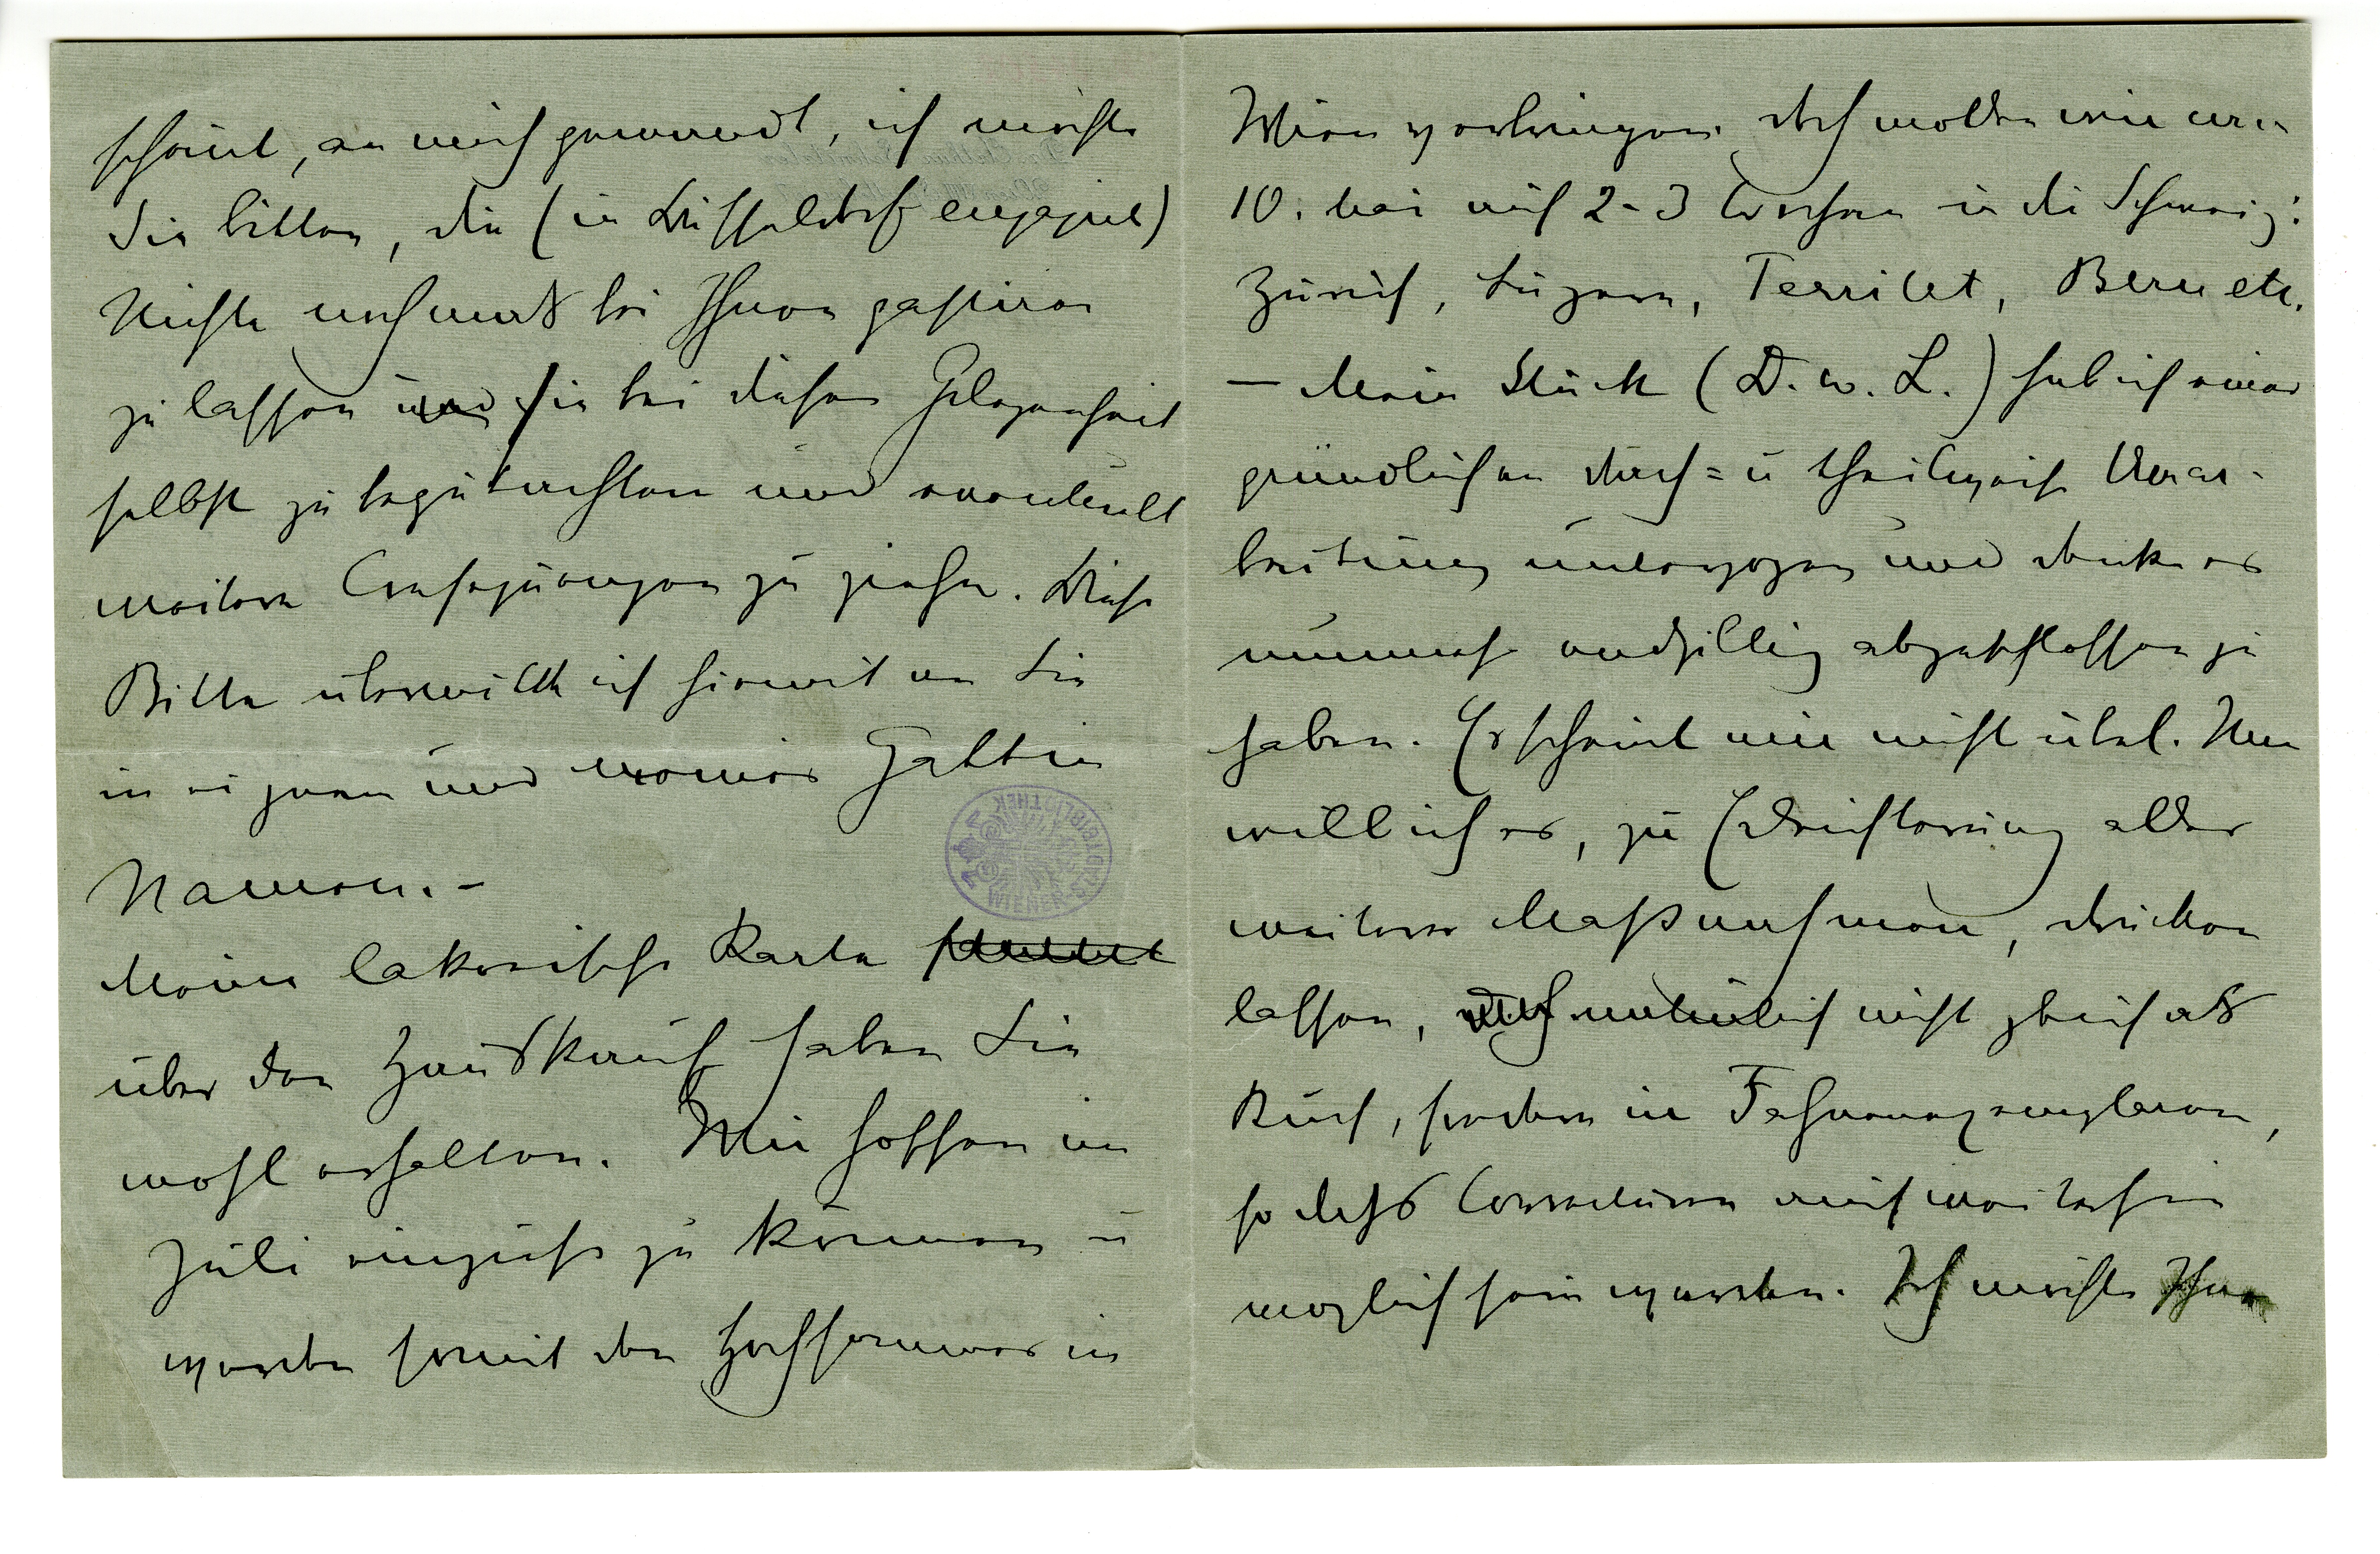 scheint, an mich gewandt, ich möchte
Sie bitten, die (in Düsseldorf engagirt)
Nichte nochmals bei Ihnen gastiren
zu lassen und sie bei dieser Gelegenheit
selbst zu begutachten und eventuell
weitere Consequenzen zu ziehen. Diese
Bitte übermittle ich hiemit an Sie
in eigenem und meiner Gattin
Namen.–
Meine lakonische Karte
über den Hauskauf haben Sie
wohl erhalten. Wir hoffen im
Juli einziehn zu können u
werden somit den Hochsommer in
Wien verbringen. Doch wollen wir am
10. Mai auf 2–3 Wochen in die Schweiz:
Zürich, Luzern, Territet, Bern etc.
— Mein Stück (D. w. L.) hab ich einer
gründlichen Durch= u theilweise Umar-
beitung unterzogen und denke es
nunmehr endgiltig abgeschlossen zu
haben. Es scheint mir nicht übel. Nun
will ich es, zu Erleichterung aller
weitern Maßnahmen, drucken
lassen, natürlich nicht gleich als
Buch, sondern in Fahnenexemplaren,
so daß Correcturen auch weiterhin
möglich sein werden. Ich möchte Ihnen
WIENER STADTBIBLIOTHEK